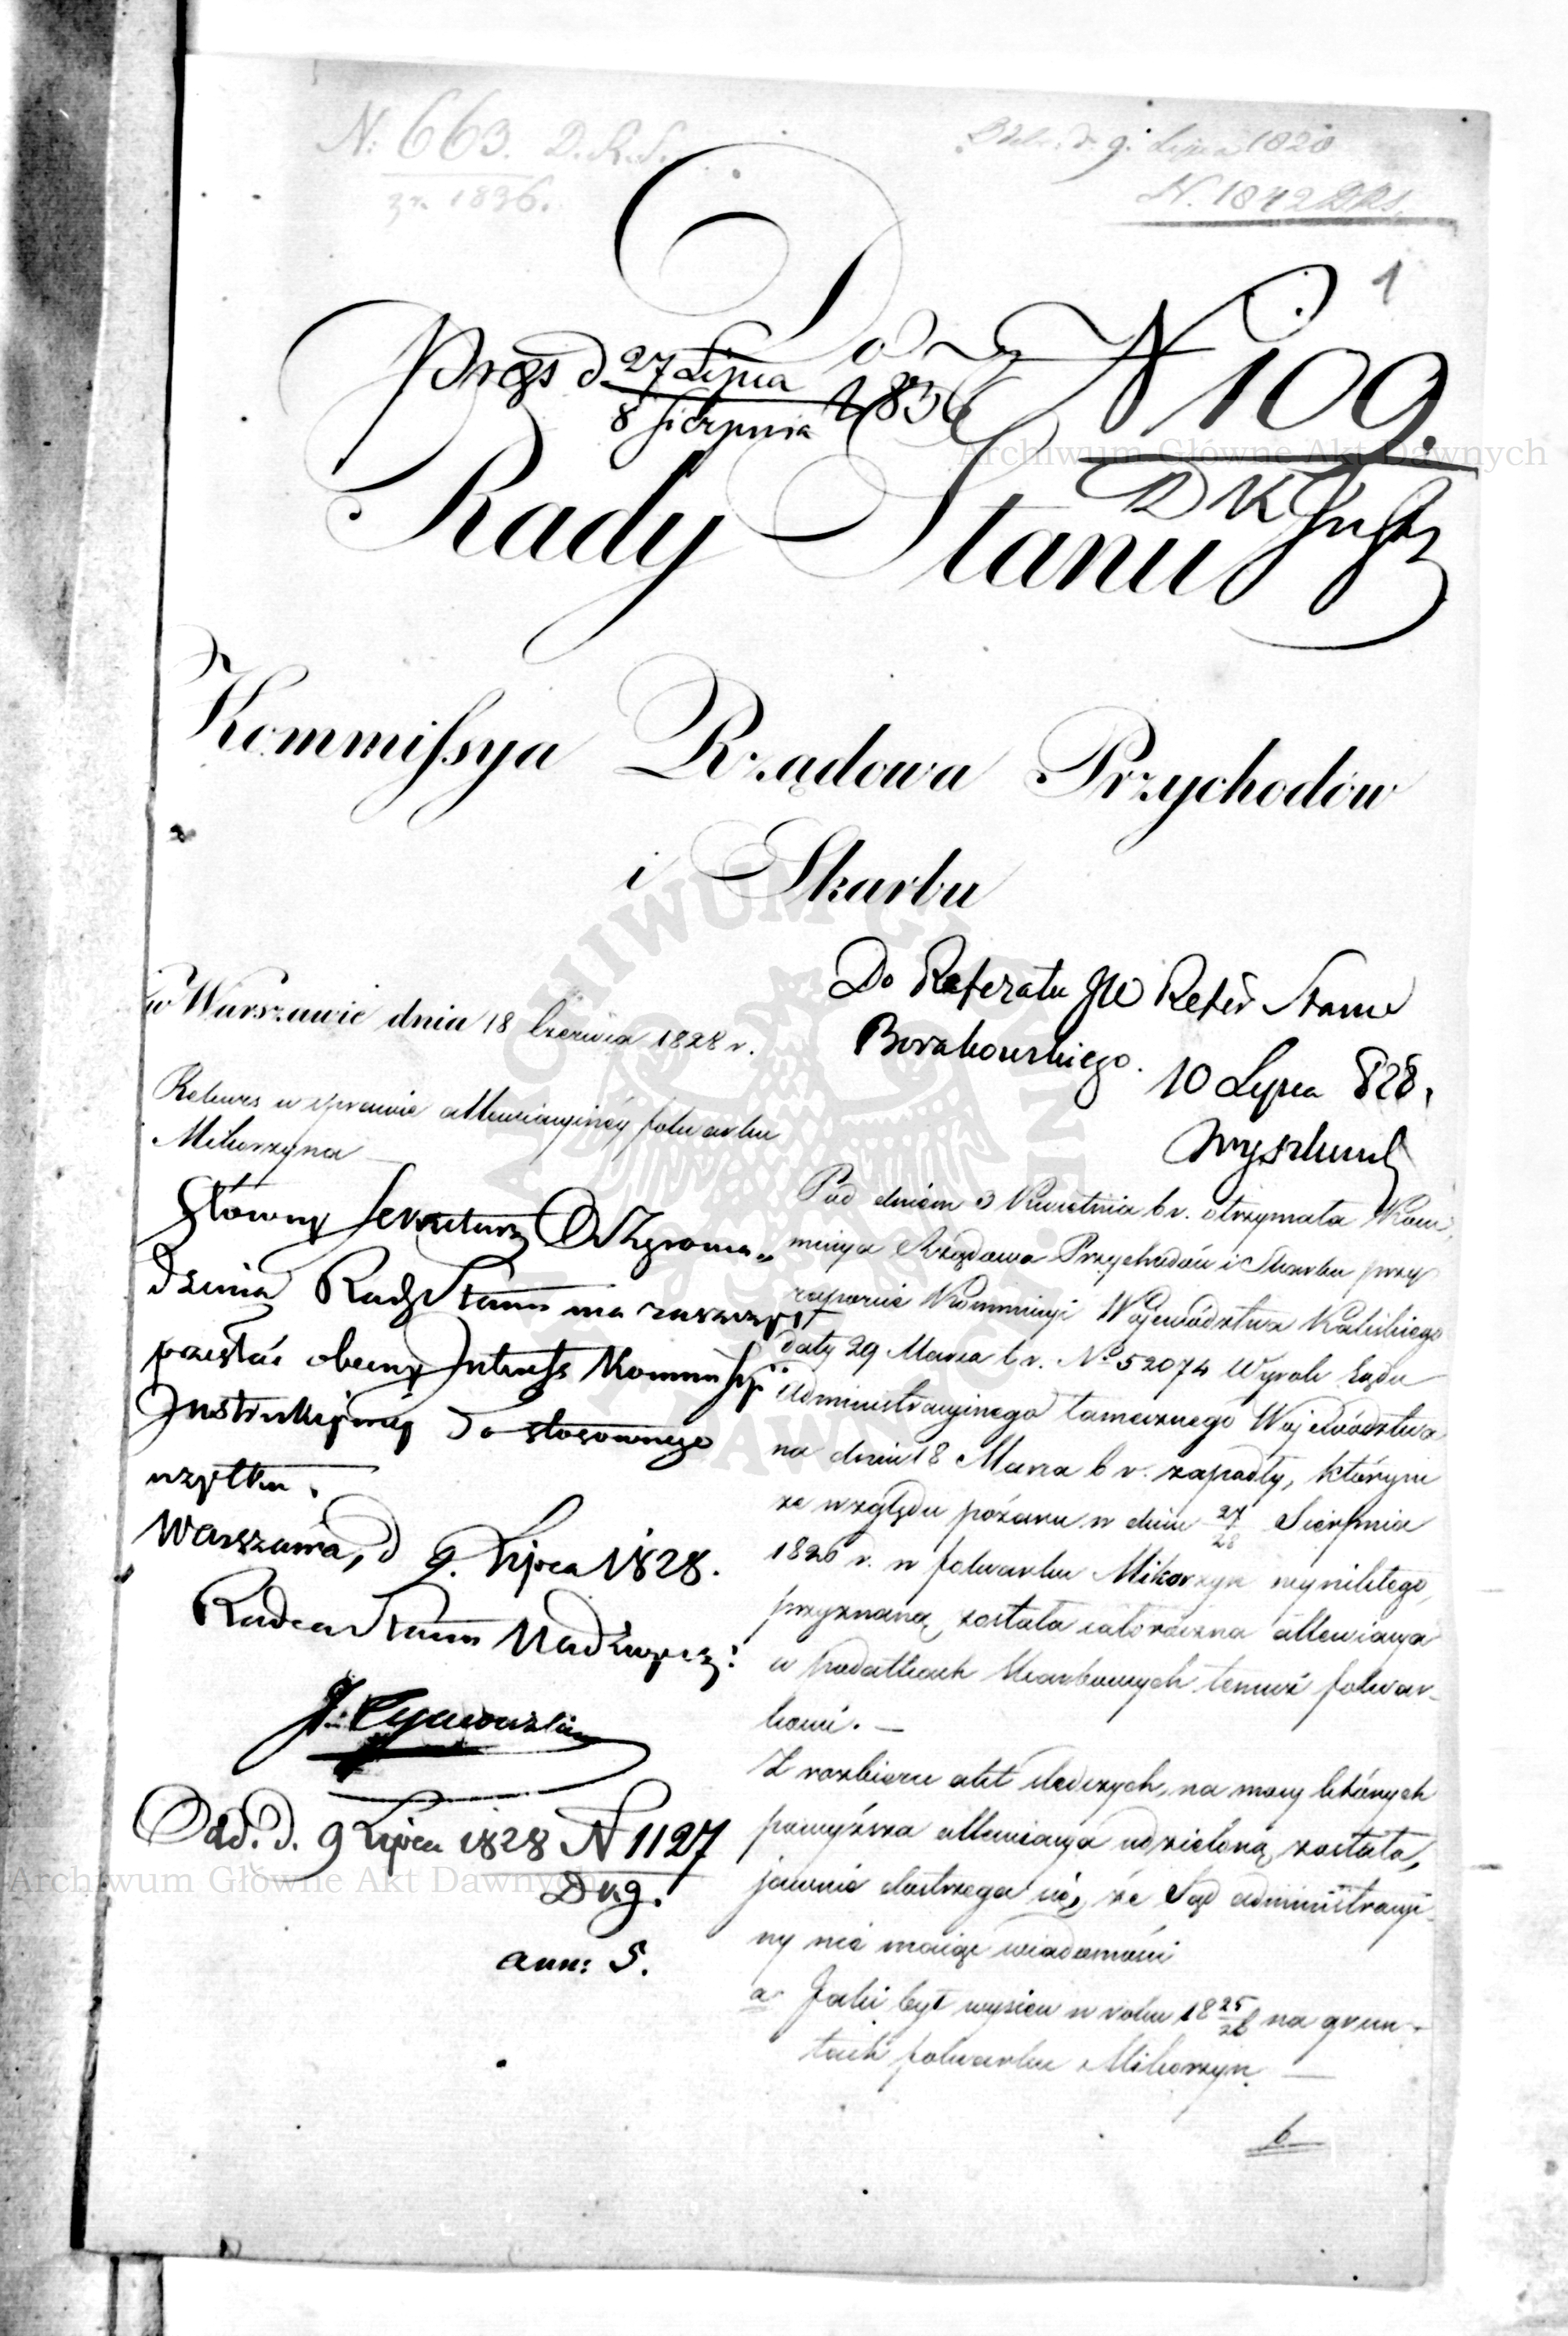 N. 663. D.R.S.
zr. 1836.
d. 9. Lipca 1828
N. 1842 DRS.
1
Do
Prezs d. 27 Lipca
8 Sierpnia 1836
N 109.
DK Inst
Rady Stanu
Kommissya Rządowa Przychodów
i Skarbu
w Warszawie dnia 18 Czerwca 1828 r.
Rekurs w sprawie allewiacyinéy folwarku
Mikorzyna
Do Referatu JW Refer Stanu
Borakowskiego.
10 Lipca 828.
Główny Sekretarz Ogo Zgroma-
dzenia Rady Stanu ma zaszczyt
przesłać obecny Interess Kommissyi
Instrukcyinéy do stosownego
użytku.
Warszawa, d 9. Lipca 1828.
Radca Stanu Nadzwycz:
Odd. d. 9 Lipca 1828 N 1127
Dng.
ann: 5.
Pod dniem 3 Kwietnia b r. otrzymała Kom-
missya Rządowa Przychodów i Skarbu przy
raporcie Kommissyi Województwa Kaliskiego
daty 29 Marca b r. No 52074 Wyrok Sądu
Administracyinego tamecznego Województwa
na dniu 18 Marca b r. zapadły, którym
ze względu pożaru w dniu 27/28 Sierpnia
1826 r. w folwarku Mikorzyn wynikłego,
przyznaną została całoroczna allewiacya
w podatkach skarbowych temuż folwar-
kowi. —
Z rozbioru akt śledczych, na mocy których
powyższa allewiacya udzieloną została,
jawnie dostrzega się, że Sąd administracyi-
ny nie maiąc wiadomości
a Jaki był wysiew w roku 1825/26 na grun-
tach folwarku Mikorzyn —
b
Archiwum Główne Akt Dawnych
Archiwum Główne Akt Dawnych